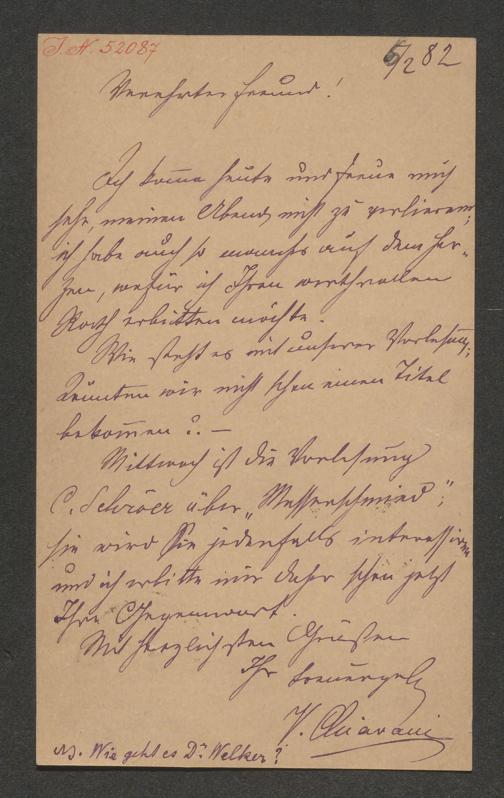 I.N. 52087
6/2 82
Verehrter Freund!
Ich komme heute und freue mich
sehr, meinen Abend nicht zu verlieren;
ich habe auch so manches auf dem Her-
zen, wofür ich Ihren werthvollen
Rath erbitten möchte.
Wie steht es mit unserer Vorlesung;
könnten wir nicht schon einen Titel
bekommen?. —
Mittwoch ist die Vorlesung
C. Schröer über „Messerschmied";
sie wird Sie jedenfalls interessiren
und ich erbitte mir daher schon jetzt
Ihre Gegenwart.
Mit herzlichsten Grüßen
Ihr
V. Chiavacci
NB. Wie geht es Dr. Welker?